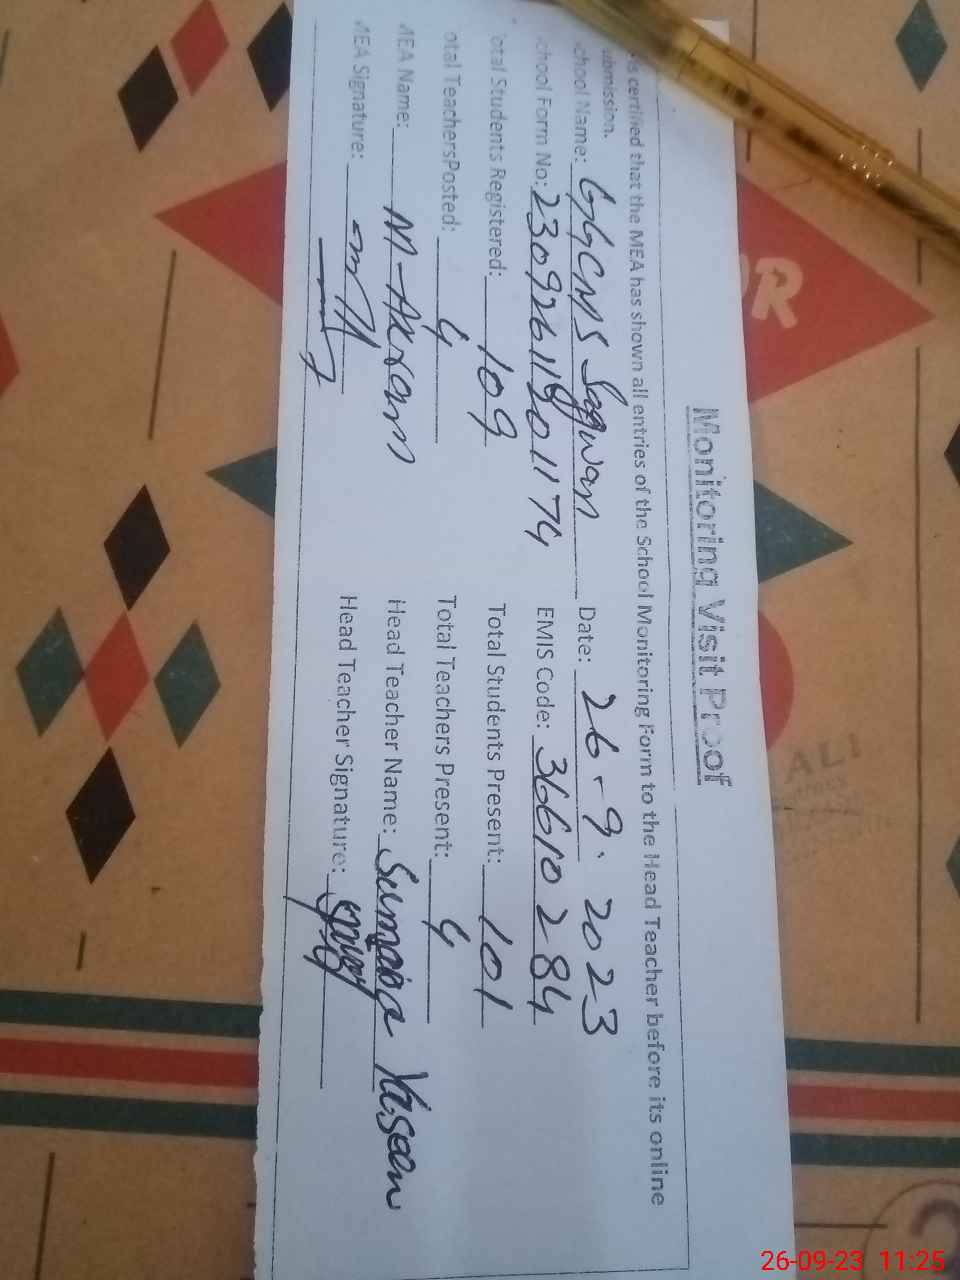 Monitoring Visit Proof
is certified that the MEA has shown all entries of the School Monitoring Form to the Head Teacher before its online
ubmission.
chool Name: GGCMS Sagwan Date: 26-9-2023
chool Form No: EMIS Code: 36610284
otal Students Registered: 109 Total Students Present: 101
otal TeachersPosted: 4 Total Teachers Present: 4
MEA Name: M-Akram Head Teacher Name: Sumaira Yaseen
MEA Signature: Head Teacher Signature:
ALI
26-09-23 11:25